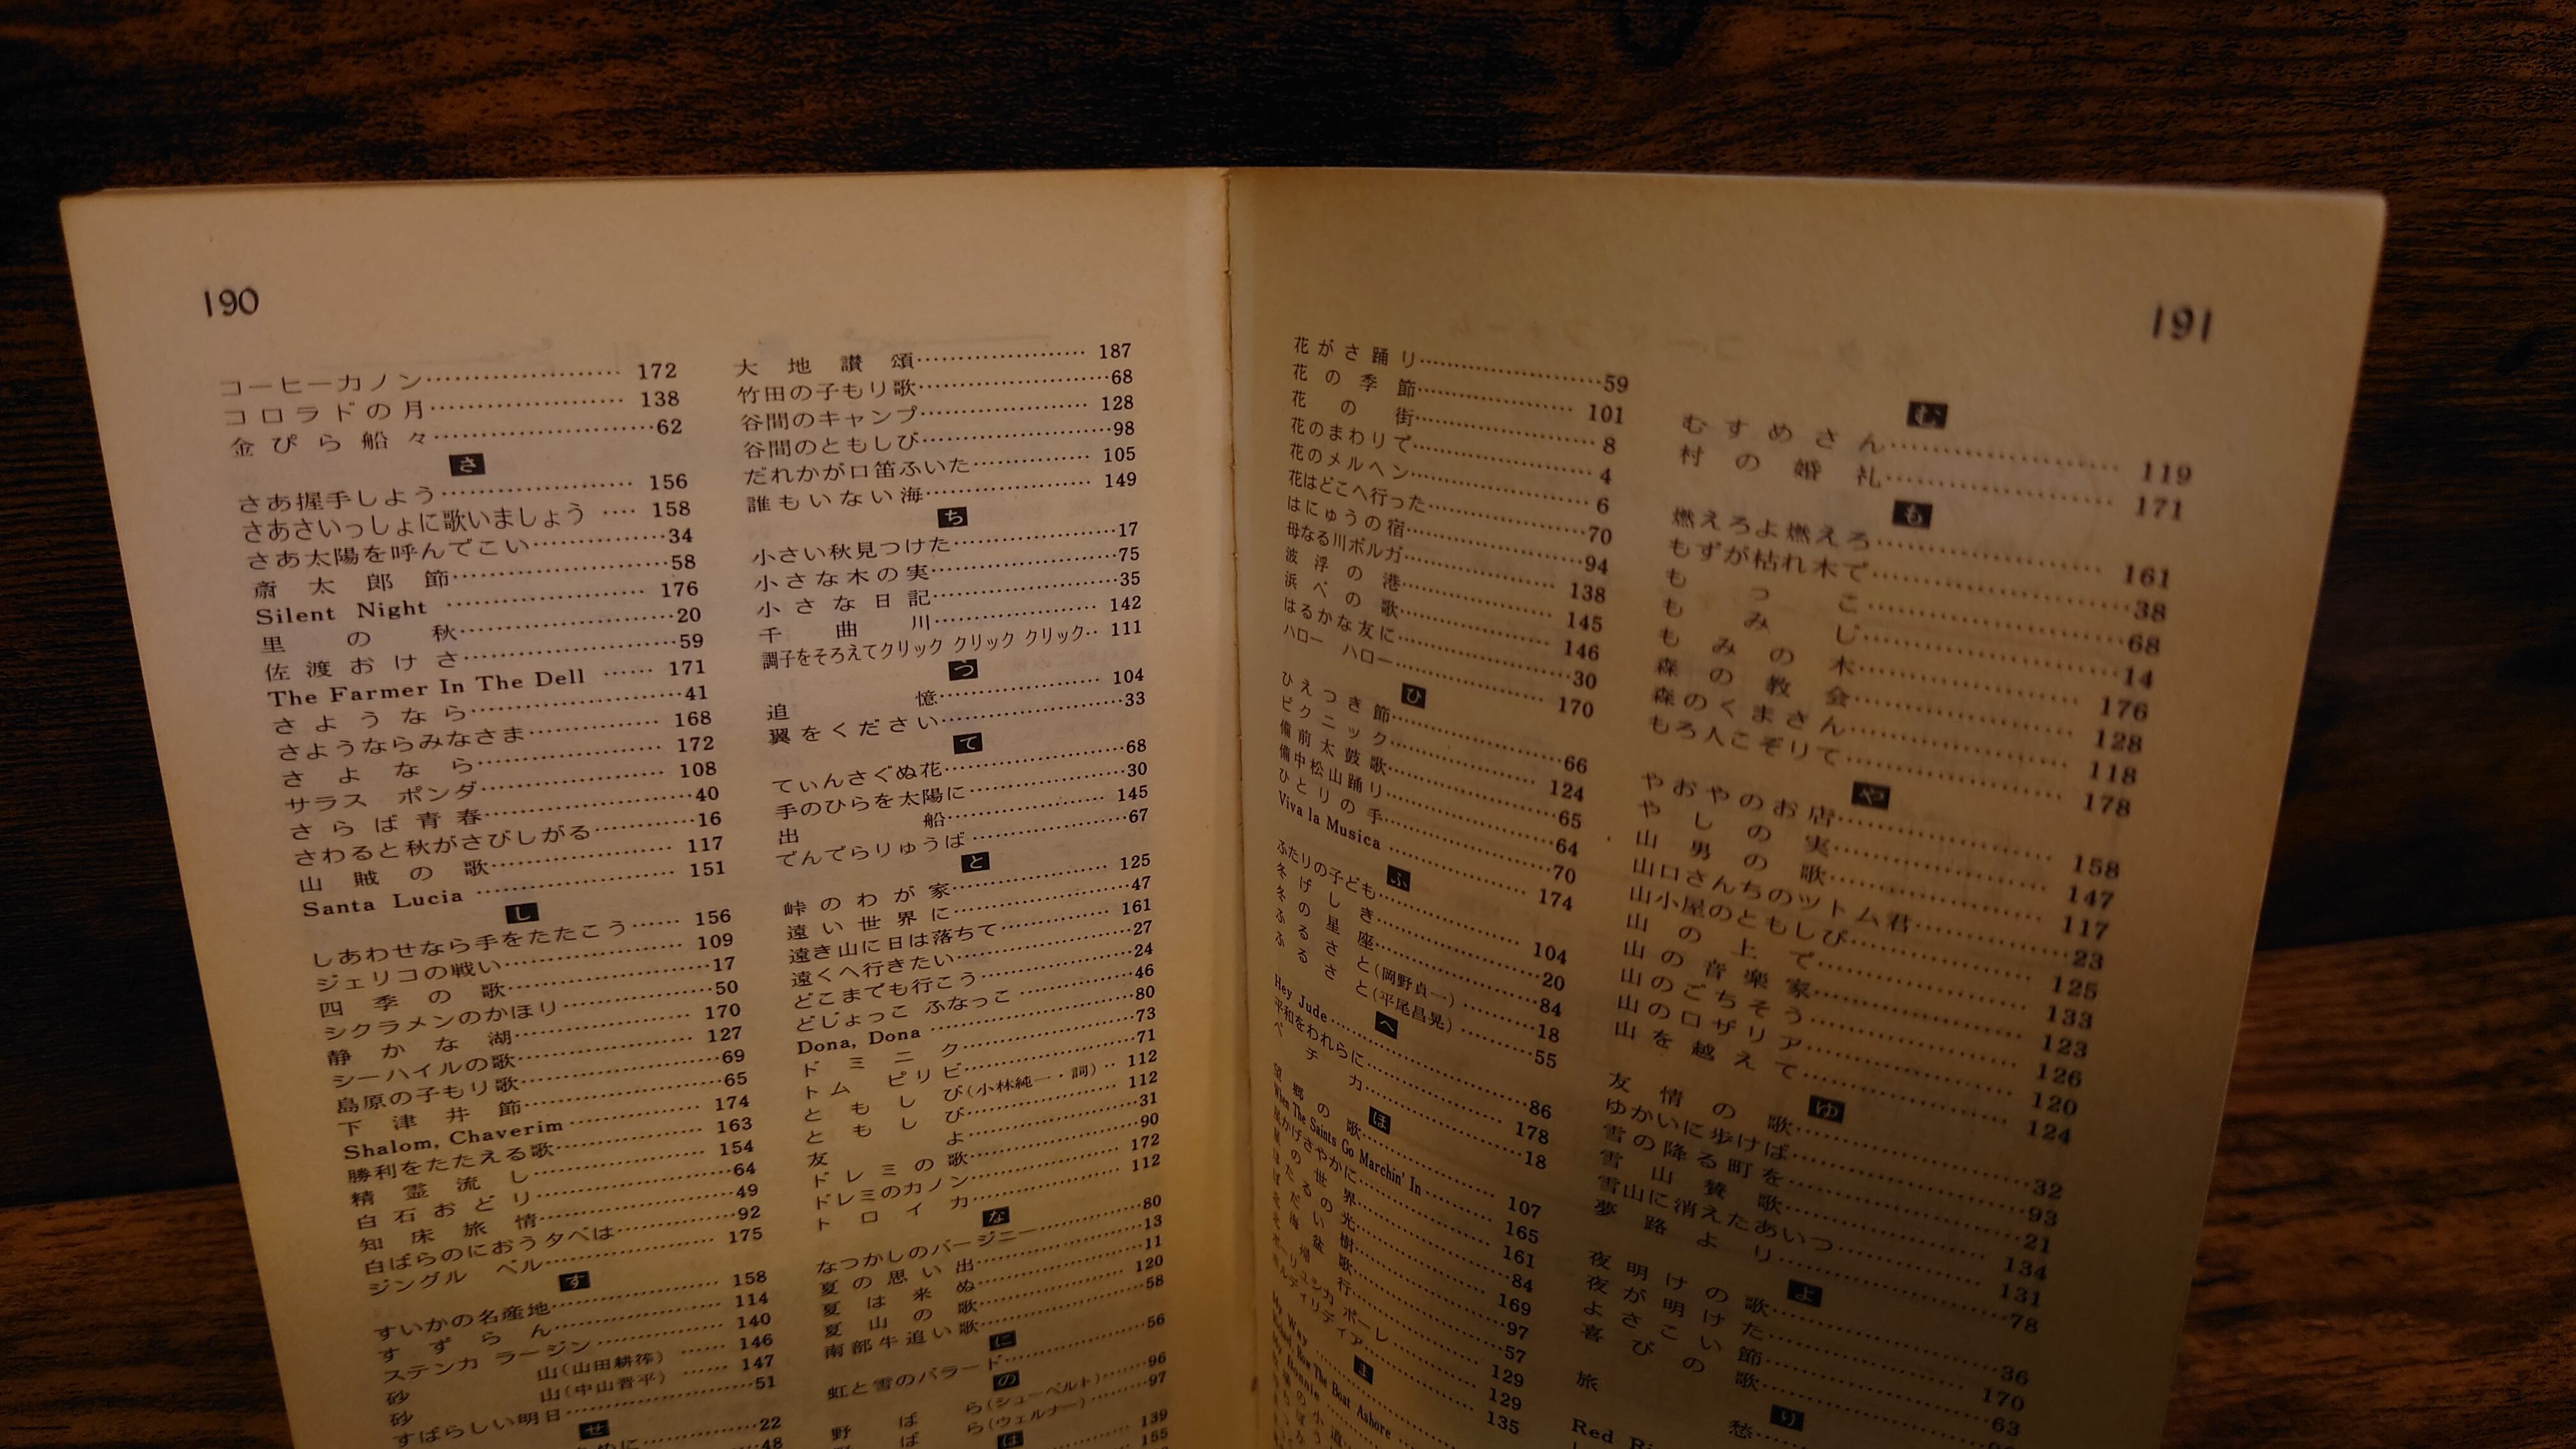 190
コーヒーカノン…………………… 172
コロラドの月…………………… 138
金ぴら船々………………………62
さ
さあ握手しよう…………………… 156
さあさいっしょに歌いましょう …… 158
さあ太陽を呼んでこい………………34
斎太郎節………………………58
Silent Night …………………… 176
里の秋………………………20
佐渡おけさ………………………59
The Farmer In The Dell …… 171
さようなら………………………41
さようならみなさま…………… 168
さよなら…………………… 172
サラスポンダ…………………… 108
さらば青春………………………40
さわると秋がさびしがる…………16
山賊の歌…………………… 117
Santa Lucia …………………… 151
し
しあわせなら手をたたこう…… 156
ジェリコの戦い…………………… 109
四季の歌………………………17
シクラメンのかほり………………50
静かな湖…………………… 170
シーハイルの歌…………………… 127
島原の子もり歌………………………69
下津井節………………………65
Shalom, Chaverim…………… 174
勝利をたたえる歌…………… 163
精霊流し…………………… 154
白石おどり………………………64
知床旅情………………………49
白ばらのにおう夕べは…………92
ジングル ベル…………………… 175
す
すいかの名産地…………………… 158
すずらん…………………… 114
ステンカ ラージン…………… 140
砂山(山田耕筰) …… 146
砂山(中山晋平) …… 147
すばらしい明日………………………51
せ
………………22
48
大地讃頌…………………… 187
竹田の子もり歌………………………68
谷間のキャンプ…………………… 128
谷間のともしび………………………98
だれかが口笛ふいた…………… 105
誰もいない海…………………… 149
ち
小さい秋見つけた………………17
小さな木の実………………………75
小さな日記………………………35
千曲川…………………… 142
調子をそろえてクリック クリック クリック‥ 111
つ
追憶…………………… 104
翼をください………………………33
て
てぃんさぐぬ花………………………68
手のひらを太陽に………………30
出船…………………… 145
でんでらりゅうば………………67
と
峠のわが家…………………… 125
遠い世界に………………………47
遠き山に日は落ちて…………… 161
遠くへ行きたい………………………27
どこまでも行こう………………24
どじょっこ ふなっこ……………46
Dona, Dona ………………………80
ドミニク………………………73
トム ピリビ………………………71
ともしび(小林純一・詞)‥ 112
ともしび…………………… 112
友よ………………………31
ドレミの歌………………………90
ドレミのカノン…………………… 172
トロイカ…………………… 112
な
なつかしのバージニー……………80
夏の思い出………………………13
夏は来ぬ………………………11
夏山の歌…………………… 120
南部牛追い歌………………………58
に
虹と雪のバラード………………56
の
野ばら(シューベルト)……96
ばら(ウェルナー)……97
は
139
155
191
花がさ踊り………………………59
花の季節…………………… 101
花の街………………………8
花のまわりで………………………4
花のメルヘン………………………6
花はどこへ行った………………70
はにゅうの宿………………………94
母なる川ボルガ…………………… 138
波浮の港…………………… 145
浜べの歌…………………… 146
はるかな友に………………………30
ハロー ハロー…………………… 170
ひ
ひえつき節………………………66
ピクニック…………………… 124
備前太鼓歌………………………65
備中松山踊り………………………64
ひとりの手………………………70
Viva la Musica …………… 174
ふ
ふたりの子ども…………………… 104
冬げしき………………………20
冬の星座………………………84
ふるさと(岡野貞一)…………18
ふるさと(平尾昌晃)…………55
へ
Hey Jude………………………86
平和をわれらに…………………… 178
ペチカ………………………18
ほ
望郷の歌…………………… 107
When The Saints Go Marchin' In…… 165
星かげさやかに…………………… 161
星の世界………………………84
169
97
57
129
129
135
ま
My Way
Michael, Row The Boat Ashore
む
むすめさん…………………… 119
村の婚礼…………………… 171
も
燃えろよ燃えろ…………………… 161
もずが枯れ木で………………………38
もっこ………………………68
もみじ………………………14
もみの木…………………… 176
森の教会…………………… 128
森のくまさん…………………… 118
もろ人こぞりて…………………… 178
や
やおやのお店…………………… 158
やしの実…………………… 147
山男の歌…………………… 117
山口さんちのツトム君……………23
山小屋のともしび…………… 125
山の上で…………………… 133
山の音楽家…………………… 123
山のごちそう…………………… 126
山のロザリア…………………… 120
山を越えて…………………… 124
ゆ
友情の歌………………………32
ゆかいに歩けば………………………93
雪の降る町を………………………21
雪山賛歌…………………… 134
雪山に消えたあいつ…………… 131
夢路より………………………78
よ
夜明けの歌………………………36
夜が明けた…………………… 170
よさこい節………………………63
喜びの歌
り
旅愁
Red